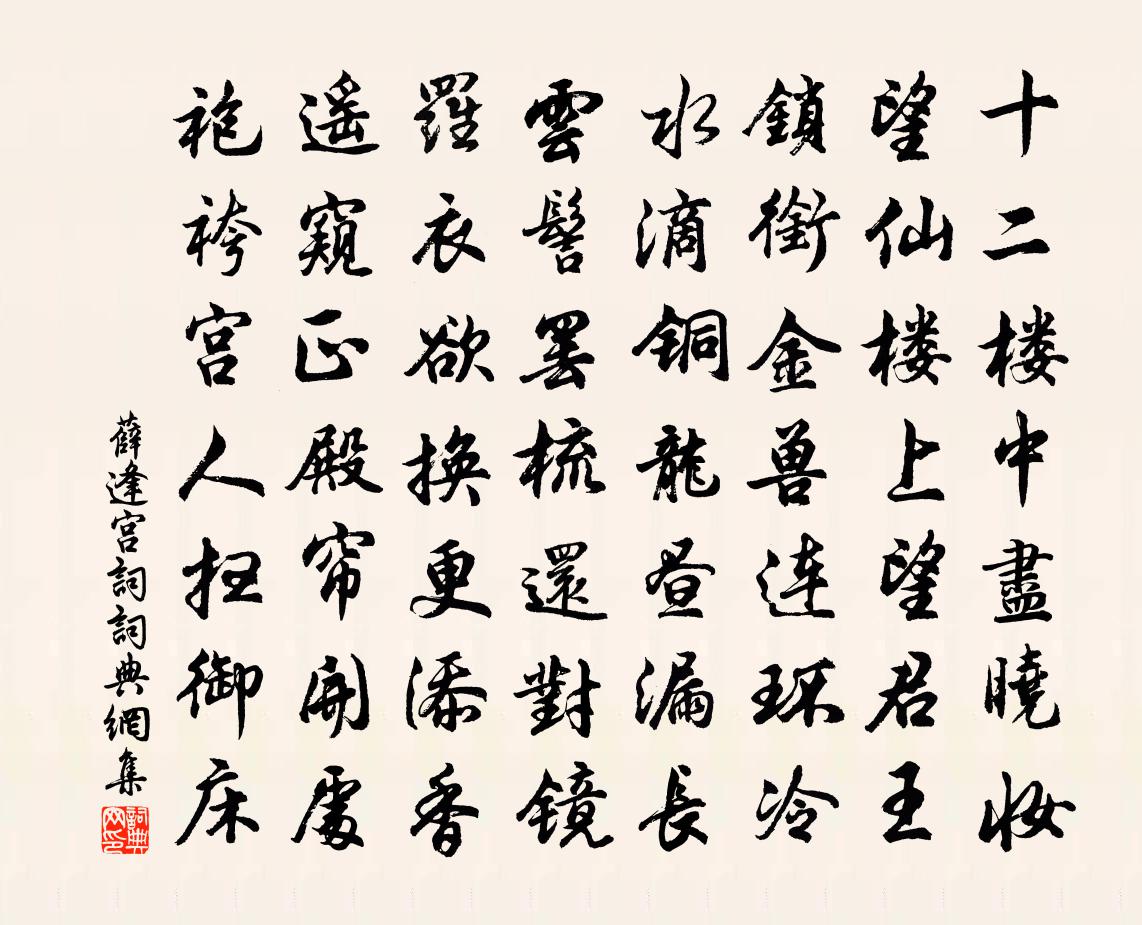 十二楼中盡曉妝
望仙楼上望君王
鎖銜金兽连环冷
水滴铜龍昼漏長
雲髻罢梳還對镜
羅衣欲换更添香
遥窺正殿帘開處
袍袴宫人扫御床
薛逢宫詞詞典網集
詞典网印